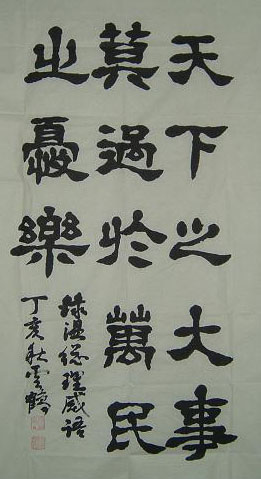 天下之大事
莫過於萬民
之憂樂
錄溫總理感語
丁亥秋雲鶴